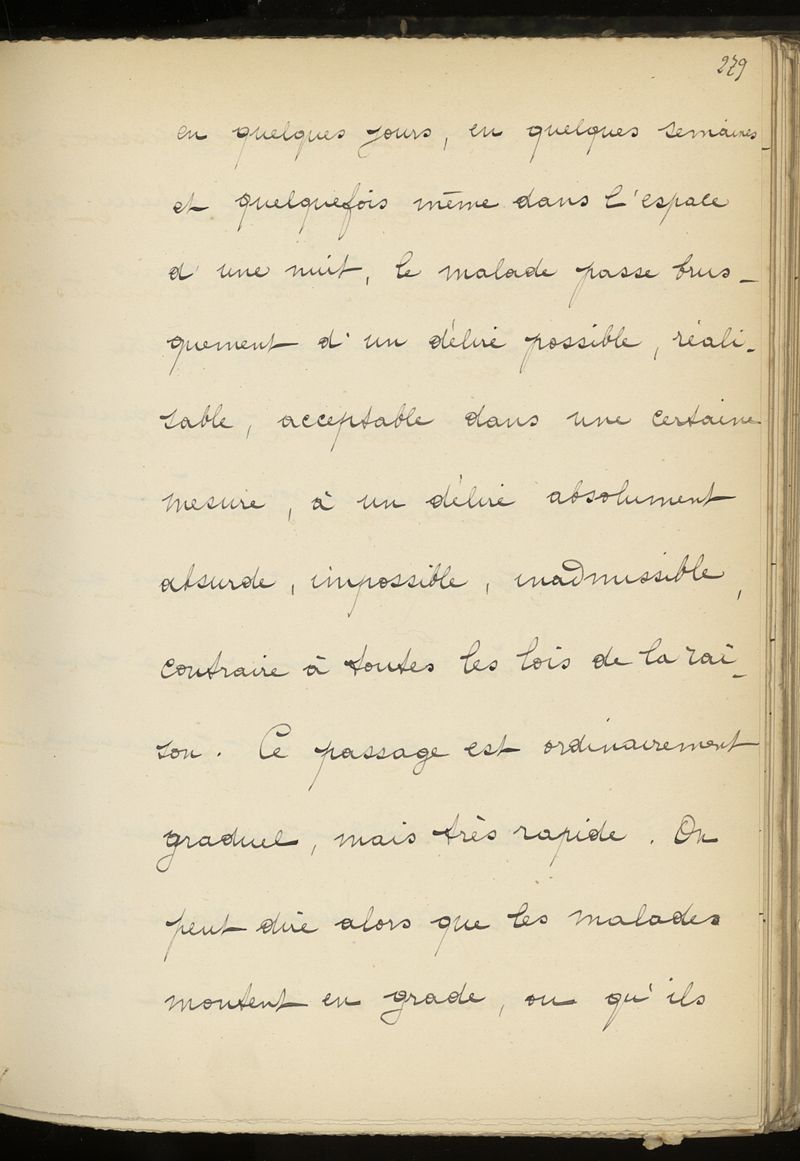 279
en quelques jours, en quelques semaines_
et quelquefois même dans l'espace
d'une nuit, le malade passe brus_
quement d'un délire possible, réali_
sable, acceptable dans une certaine
mesure, à un délire absolument
absurde, impossible, inadmissible,
contraire à toutes les lois de la rai_
son. Ce passage est ordinairement
graduel, mais très rapide. On
peut dire alors que les malades
montent en grade, ou qu'ils